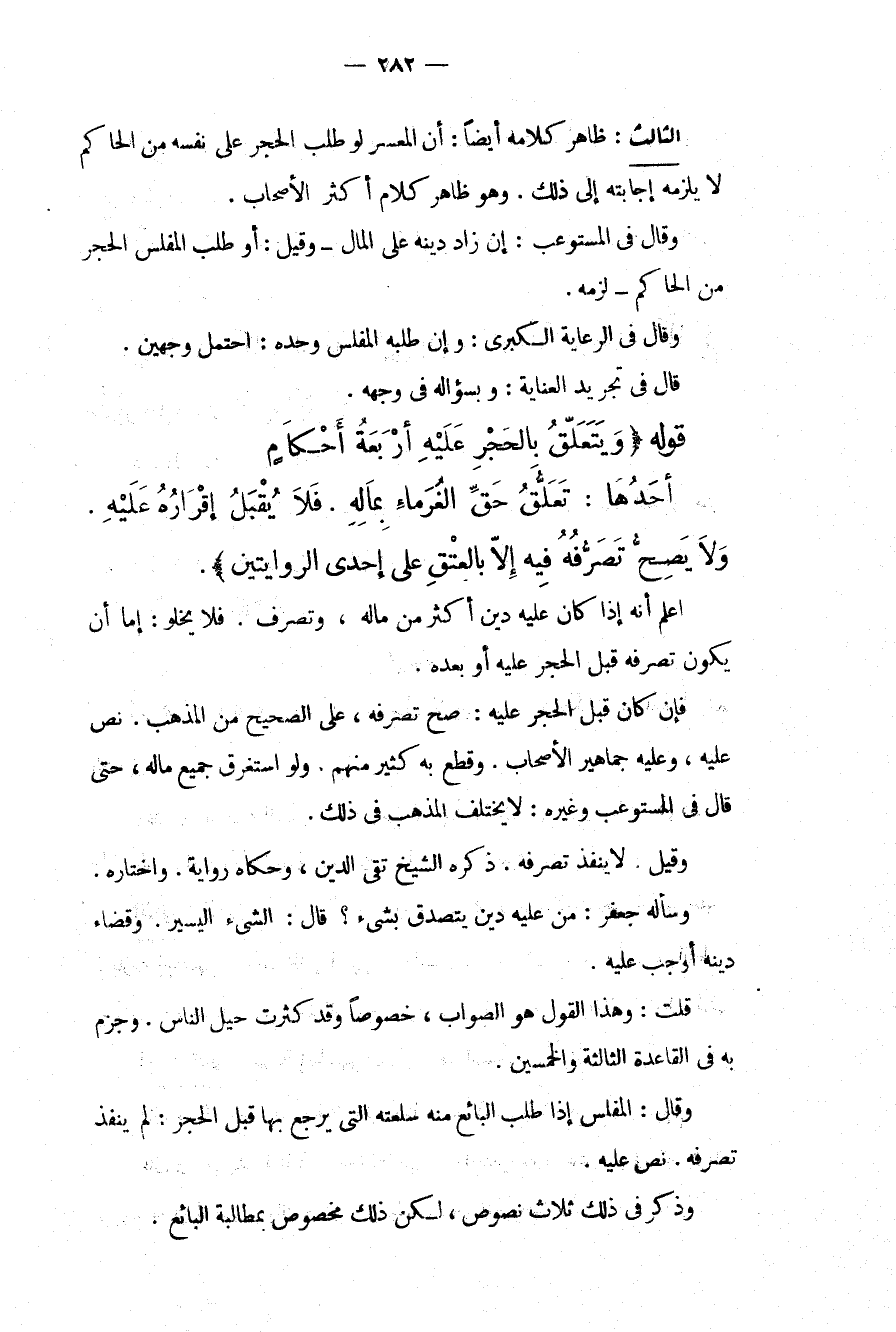 — ٢٨٢ —
الثالث : ظاهر كلامه أيضاً : أن المعسر لو طلب الحجر على نفسه من الحاكم
لا يلزمه إجابته إلى ذلك . وهو ظاهر كلام أكثر الأصحاب .
وقال فى المستوعب : إن زاد دينه على المال ـ وقيل : أو طلب المفلس الحجر
من الحاكم ـ لزمه .
وقال فى الرعاية الكبرى : وإن طلبه المفلس وحده : احتمل وجهين .
قال فى تجريد العناية : وبسؤاله فى وجهه .
قوله ﴿ وَيَتَعَلَّقُ بِالحَجْرِ عَلَيْهِ أَرْبَعَةُ أَحْكاَمٍ
أَحَدُهَا : تَعَلُّقُ حَقِّ الغُرَماءِ بِمَالِهِ . فَلاَ يُقْبَلُ إقْرَارُهُ عَلَيْهِ .
وَلاَ يَصِحُّ تَصَرُّفُهُ فِيهِ إِلاّ بالعِتْقِ على إحدى الروايتين ﴾ .
اعلم أنه إذا كان عليه دين أكثر من ماله ، وتصرف . فلا يخلو : إما أن
يكون تصرفه قبل الحجر عليه أو بعده .
فإن كان قبل الحجر عليه : صح تصرفه ، على الصحيح من المذهب . نص
عليه ، وعليه جماهير الأصحاب . وقطع به كثير منهم . ولو استغرق جميع ماله ، حتى
قال فى المستوعب وغيره : لا يختلف المذهب فى ذلك .
وقيل . لا ينفذ تصرفه . ذكره الشيخ تقى الدين ، وحكاه رواية . واختاره .
وسأله جعفر : من عليه دين يتصدق بشىء ؟ قال : الشىء اليسير . وقضاء
دينه أوجب عليه .
قلت : وهذا القول هو الصواب ، خصوصاً وقد كثرت حيل الناس . وجزم
به فى القاعدة الثالثة والخمسين .
وقال : المفلس إذا طلب البائع منه سلعته التى يرجع بها قبل الحجر : لم ينفذ
تصرفه . نص عليه .
وذكر فى ذلك ثلاث نصوص ، لكن ذلك مخصوص بمطالبة البائع .